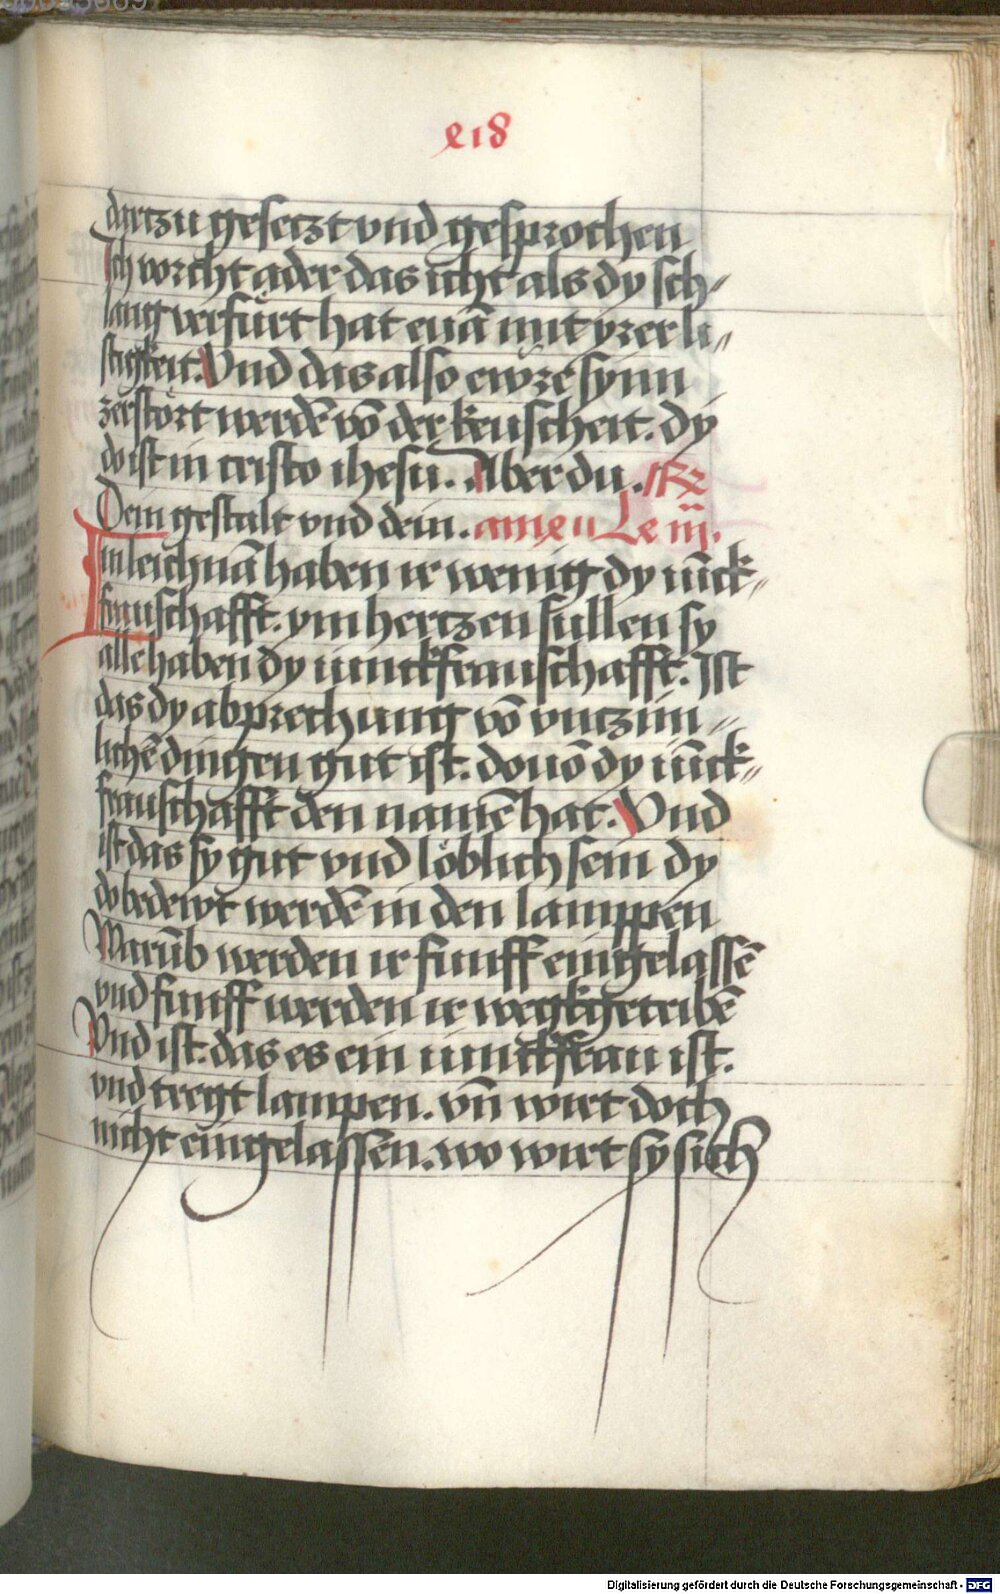 218
dartzu gesetzt vnd gesprochen
Ich vorcht ader das icht als dy sch-
lang verfürt hat euā mit yrer li-
stigkeit. Vnd das also ewre synn
zerstört werdē vō der keuscheit. dy
do ist in cristo ihesū. Aber du. Rx
Dein gestalt vnd dein. amen Le iii.
Im leichnā haben ir wenig dy iūck-
frauschafft. ym hertzen sullen sy
alle haben dy iunckfrauschafft. Ist
das dy abprechung vō vntzim-
lichē dingen gut ist. douō dy iūck-
frauschafft den namē hat. Vnd
ist das sy gut vnd löblich sein dy
do bedewt werdē in den lamppen
Warūb werden ir funff eingelassē
vnd funff werden ir wegkgetribē
Vnd ist. das es ein iunckfrau ist.
vnd tregt lampen. vn̄ wirt doch
nicht eingelassen. wo wirt sy sich
Digitalisierung gefördert durch die Deutsche Forschungsgemeinschaft - DFG